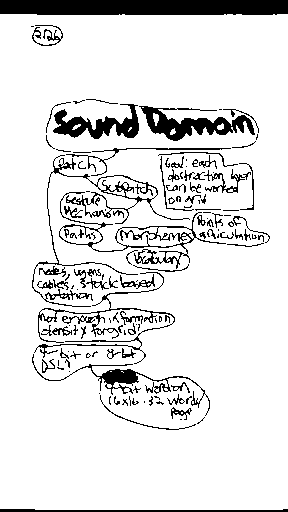 2/26
Sound Domain
Patch
Goal: each
abstraction layer
can be worked
on grid
Subpatch
Gesture
Mechanism
Points of
articulation
Paths
Morphemes
Vocabulary
nodes, ugens,
cables, stack based
notation
not enough information
density for grid?
4-bit or 8-bit
DSL?
4-bit version
16x16. 32 words
page